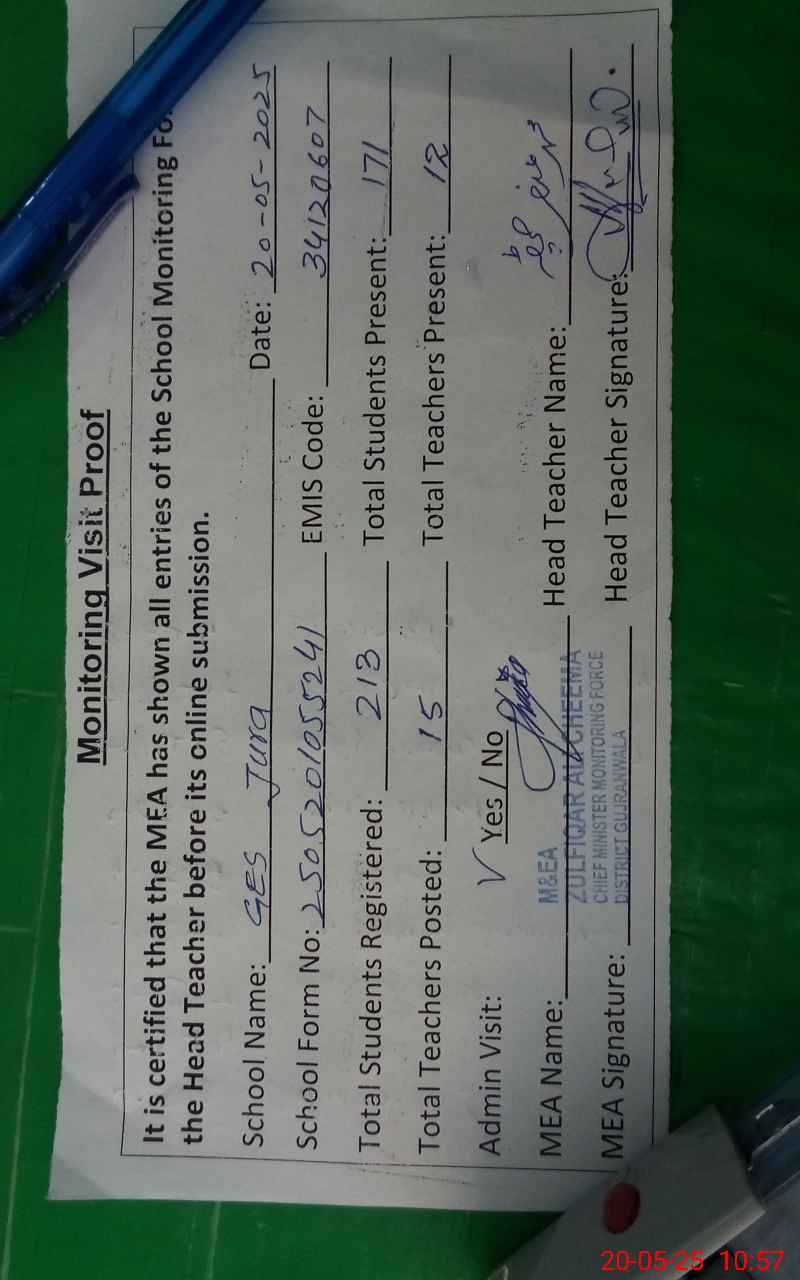 Monitoring Visit Proof
It is certified that the MEA has shown all entries of the School Monitoring Fo
the Head Teacher before its online submission.
School Name: GES Jura Date: 20-05-2025
School Form No: 2505201055241 EMIS Code: 34120607
Total Students Registered: 213 Total Students Present: 171
Total Teachers Posted: 15 Total Teachers Present: 12
Admin Visit: ✓ Yes / No
M&EA
MEA Name: ZULFIQAR ALI CHEEMA Head Teacher Name:
CHIEF MINISTER MONITORING FORCE
MEA Signature: DISTRICT GUJRANWALA Head Teacher Signature:
20-05-25 10:57